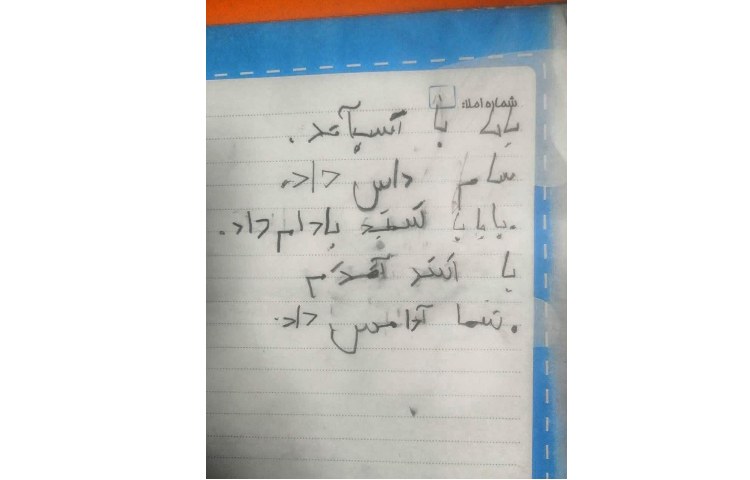 شماره املا: ۱
بابا با اسب آمد.
سام داس داد.
بابا با سبد بادام داد.
با اسب آمدم
.شما آدامس داد.